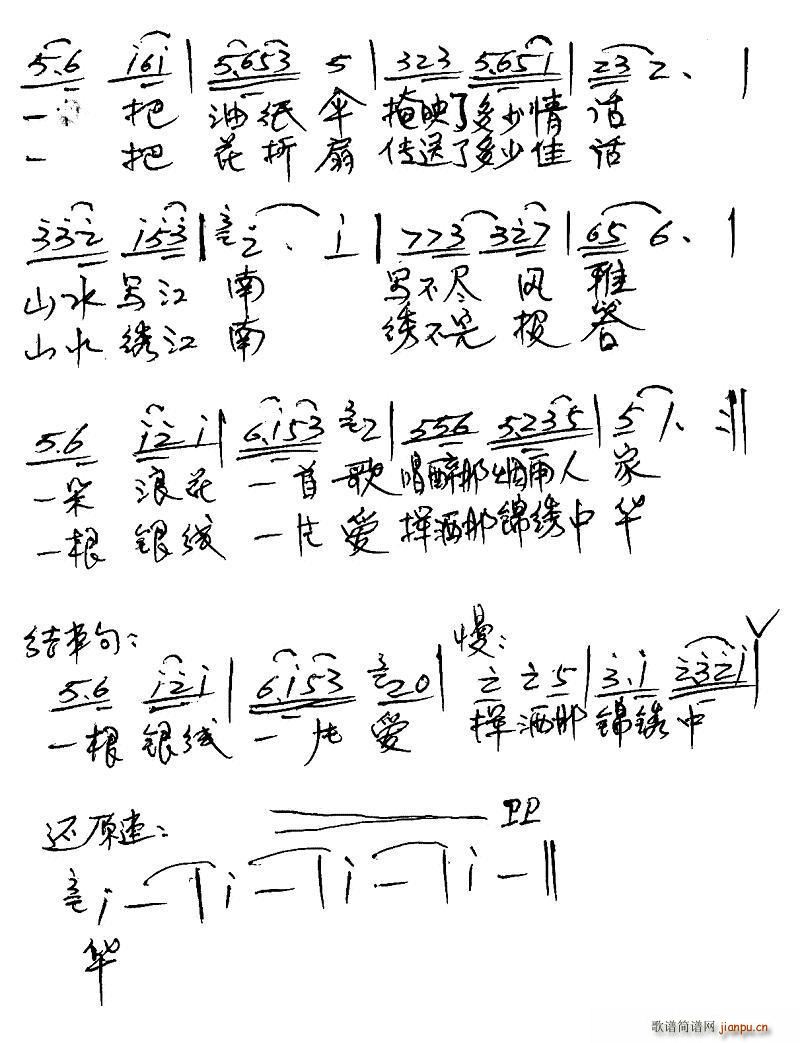 5.6 i6i | 5.653 5 | 323 5.651 | 23 2. |
一 把 油纸 伞 掩映了多少情 话
一 把 花折 扇 传送了多少佳 话
332 i53 | 2. i | 773 327 | 65 6. |
山水写江 南 写不尽 风 雅
山水绣江 南 绣不完 报 答
5.6 i2i | 6.i53 32 | 556 5.235 | 5 1. :||
一朵 浪花 一首 歌 唱醉那烟雨人 家
一根 银线 一片 爱 挥洒那锦绣中 华
结束句: 慢:
5.6 i2i | 6.i53 320 | 2 2 5 | 3.i 232i |
一根 银线 一片 爱 挥 洒那 锦绣 中
还原速: PP
i — | i — | i — | i — ||
华
歌谱简谱网 jianpu.cn